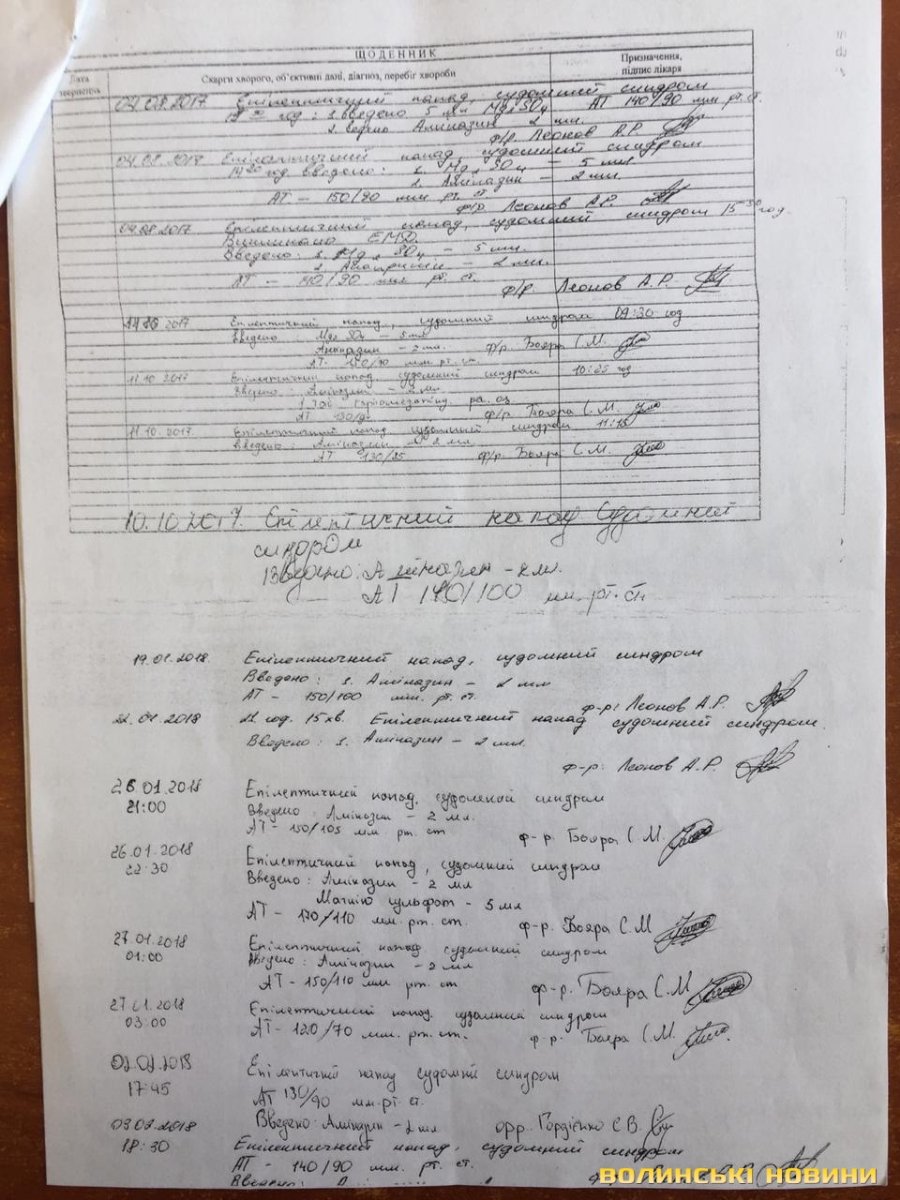 ЩОДЕННИК
Дата звернення
Скарги хворого, об'єктивні дані, діагноз, перебіг хвороби
Призначення, підпис лікаря
02.08.2017 Епілептичний напад, судомний синдром
год: 1. введено 5 мл MgSO4 АТ 140/90 мм рт. ст.
2. Аміназин 2 мл.
ф/р Леонов А.Р.
04.08.2018 Епілептичний напад, судомний синдром
14 год введено: 1. MgSO4 – 5 мл
2. Аміназин – 2 мл.
АТ – 150/90 мм. рт. ст.
ф/р Леонов А.Р.
04.08.2017 Епілептичний напад, судомний синдром 15 30 год.
Викликано ЕМД.
Введено: 1. MgSO4 – 5 мл.
– 2 мл.
АТ – 140/90 мм. рт. ст.
ф/р. Леонов А.Р.
2017 Епілептичний напад, судомний синдром 09:30 год
Введено: MgSO4 – 5 мл
Аміназин – 2 мл. ф/р. Бояра С.М.
АТ мм. рт. ст.
11.10.2017 Епілептичний напад, судомний синдром год
Введено: Аміназин – 2 мл
АТ ф/р. Бояра С.М.
11.10.2017. Епілептичний напад, судомний синдром 11:15
Введено: Аміназин – 2 мл
АТ 130/85 ф/р. Бояра С.М.
10.10.2017. Епілептичний напад Судомний
синдром
Введено: Аміназин – 2 мл.
АТ 140/100 мм. рт. ст
19.01.2018 Епілептичний напад, судомний синдром
Введено: 1. Аміназин – 2 мл
АТ – 150/100 мм. рт. ст.
ф-р: Леонов А.Р.
22.01.2018 21 год. 15 хв. Епілептичний напад судомний синдром.
Введено: 1. Аміназин – 2 мл.
ф-р. Леонов А.Р.
26.01.2018 Епілептичний напад, судомний синдром
21:00 Введено: Аміназин – 2 мл.
АТ – 150/105 мм рт. ст ф-р. Бояра С.М.
26.01.2018 Епілептичний напад, судомний синдром
22:30 Введено: Аміназин – 2 мл
Магнію сульфат – 5 мл
АТ – 170/110 мм. рт. ст. ф-р. Бояра С.М
27.01.2018 Епілептичний напад, судомний синдром
01:00 Введено: Аміназин – 2 мл
АТ – 150/110 мм. рт. ст. ф-р. Бояра С.М
27.01.2018 Епілептичний напад, судомний синдром
03:00 АТ – 120/70 мм. рт. ст. ф-р. Бояра С.М.
02.02.2018 Епілептичний напад судомний синдром
17:45 АТ 130/90 мм.рт.ст.
Введено: Аміназин – 2 мл Гордієнко С.В.
03.02.2018 Епілептичний напад, судомний синдром
18:30 АТ – 140/90 мм. рт. ст.
Введено:
ВОЛИНСЬКІ НОВИНИ